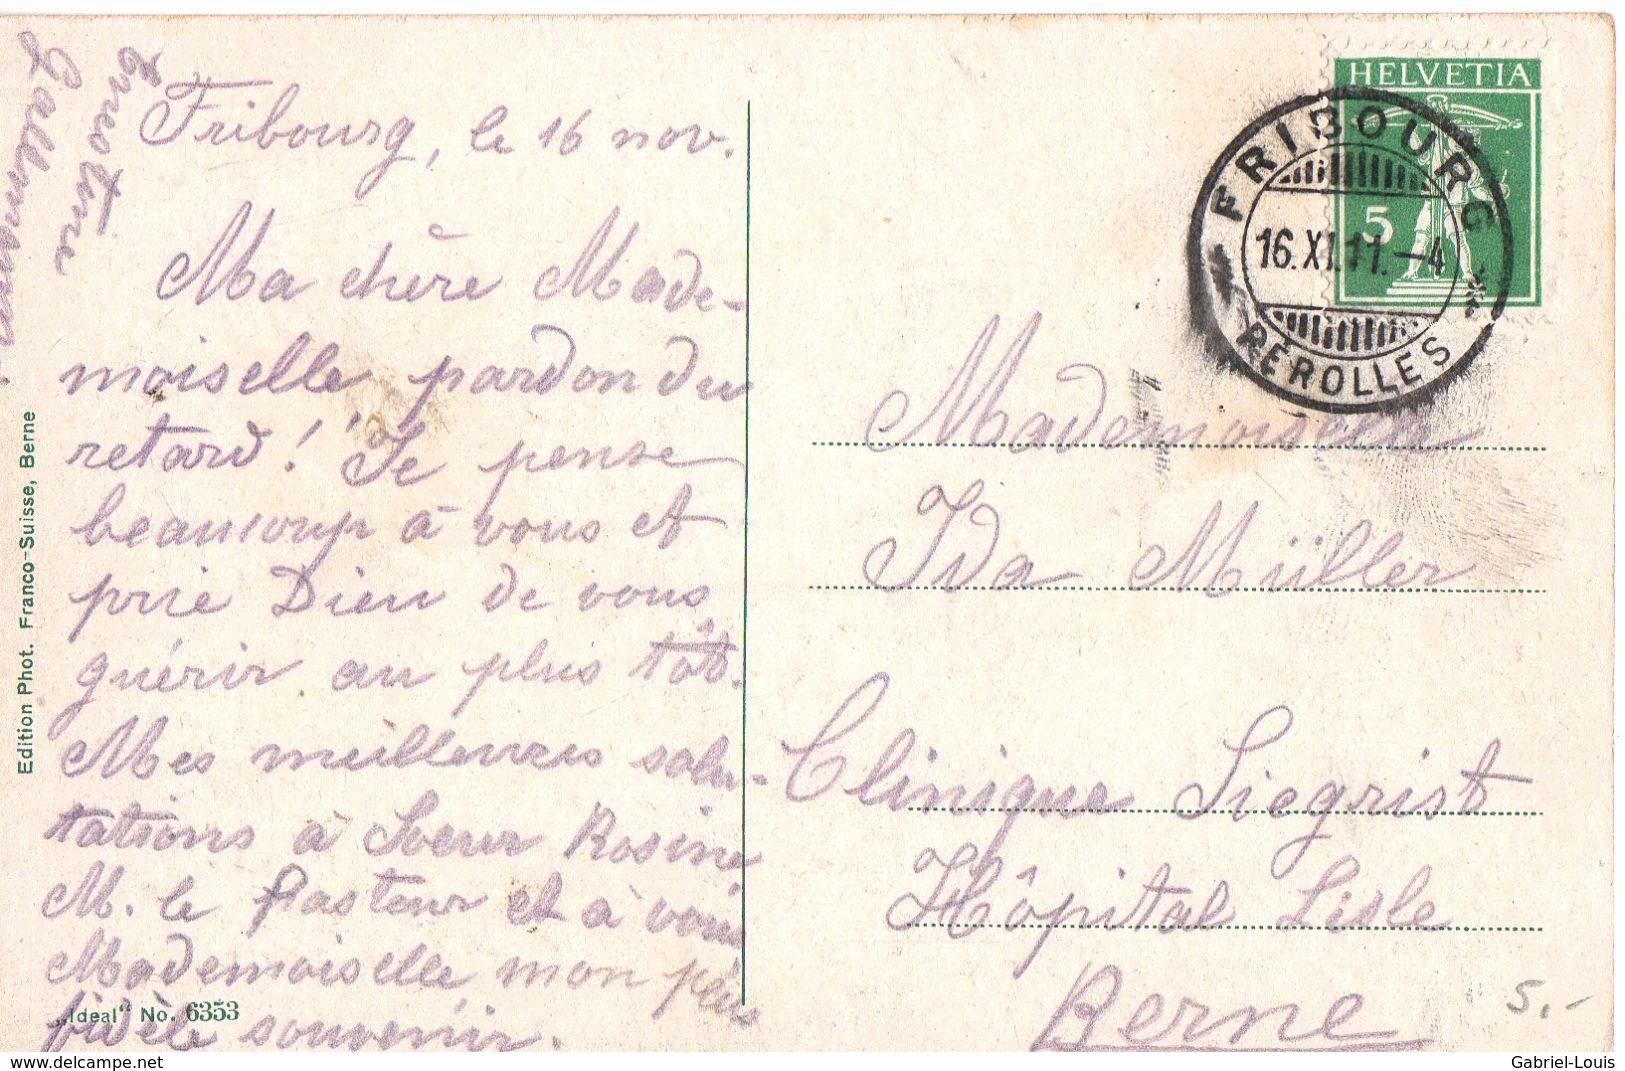 Fribourg, le 16 nov.
Ma chère Made-
moiselle pardon du
retard! Je pense
beaucoup à vous et
prie Dieu de vous
guérir au plus tôt.
Mes meilleures salu-
tations à Soeur Rosine
M. le Pasteur et à vous
Mademoiselle, mon plus
fidèle souvenir.
Edition Phot. Franco-Suisse, Berne
„Ideal“ No. 6353
HELVETIA
5
FRIBOURG
16.XI.11.-4
PÉROLLES
Mademoiselle
Ida Müller
Clinique Siegrist
Hôpital Lisle
Berne
5.-
www.delcampe.net
Gabriel-Louis